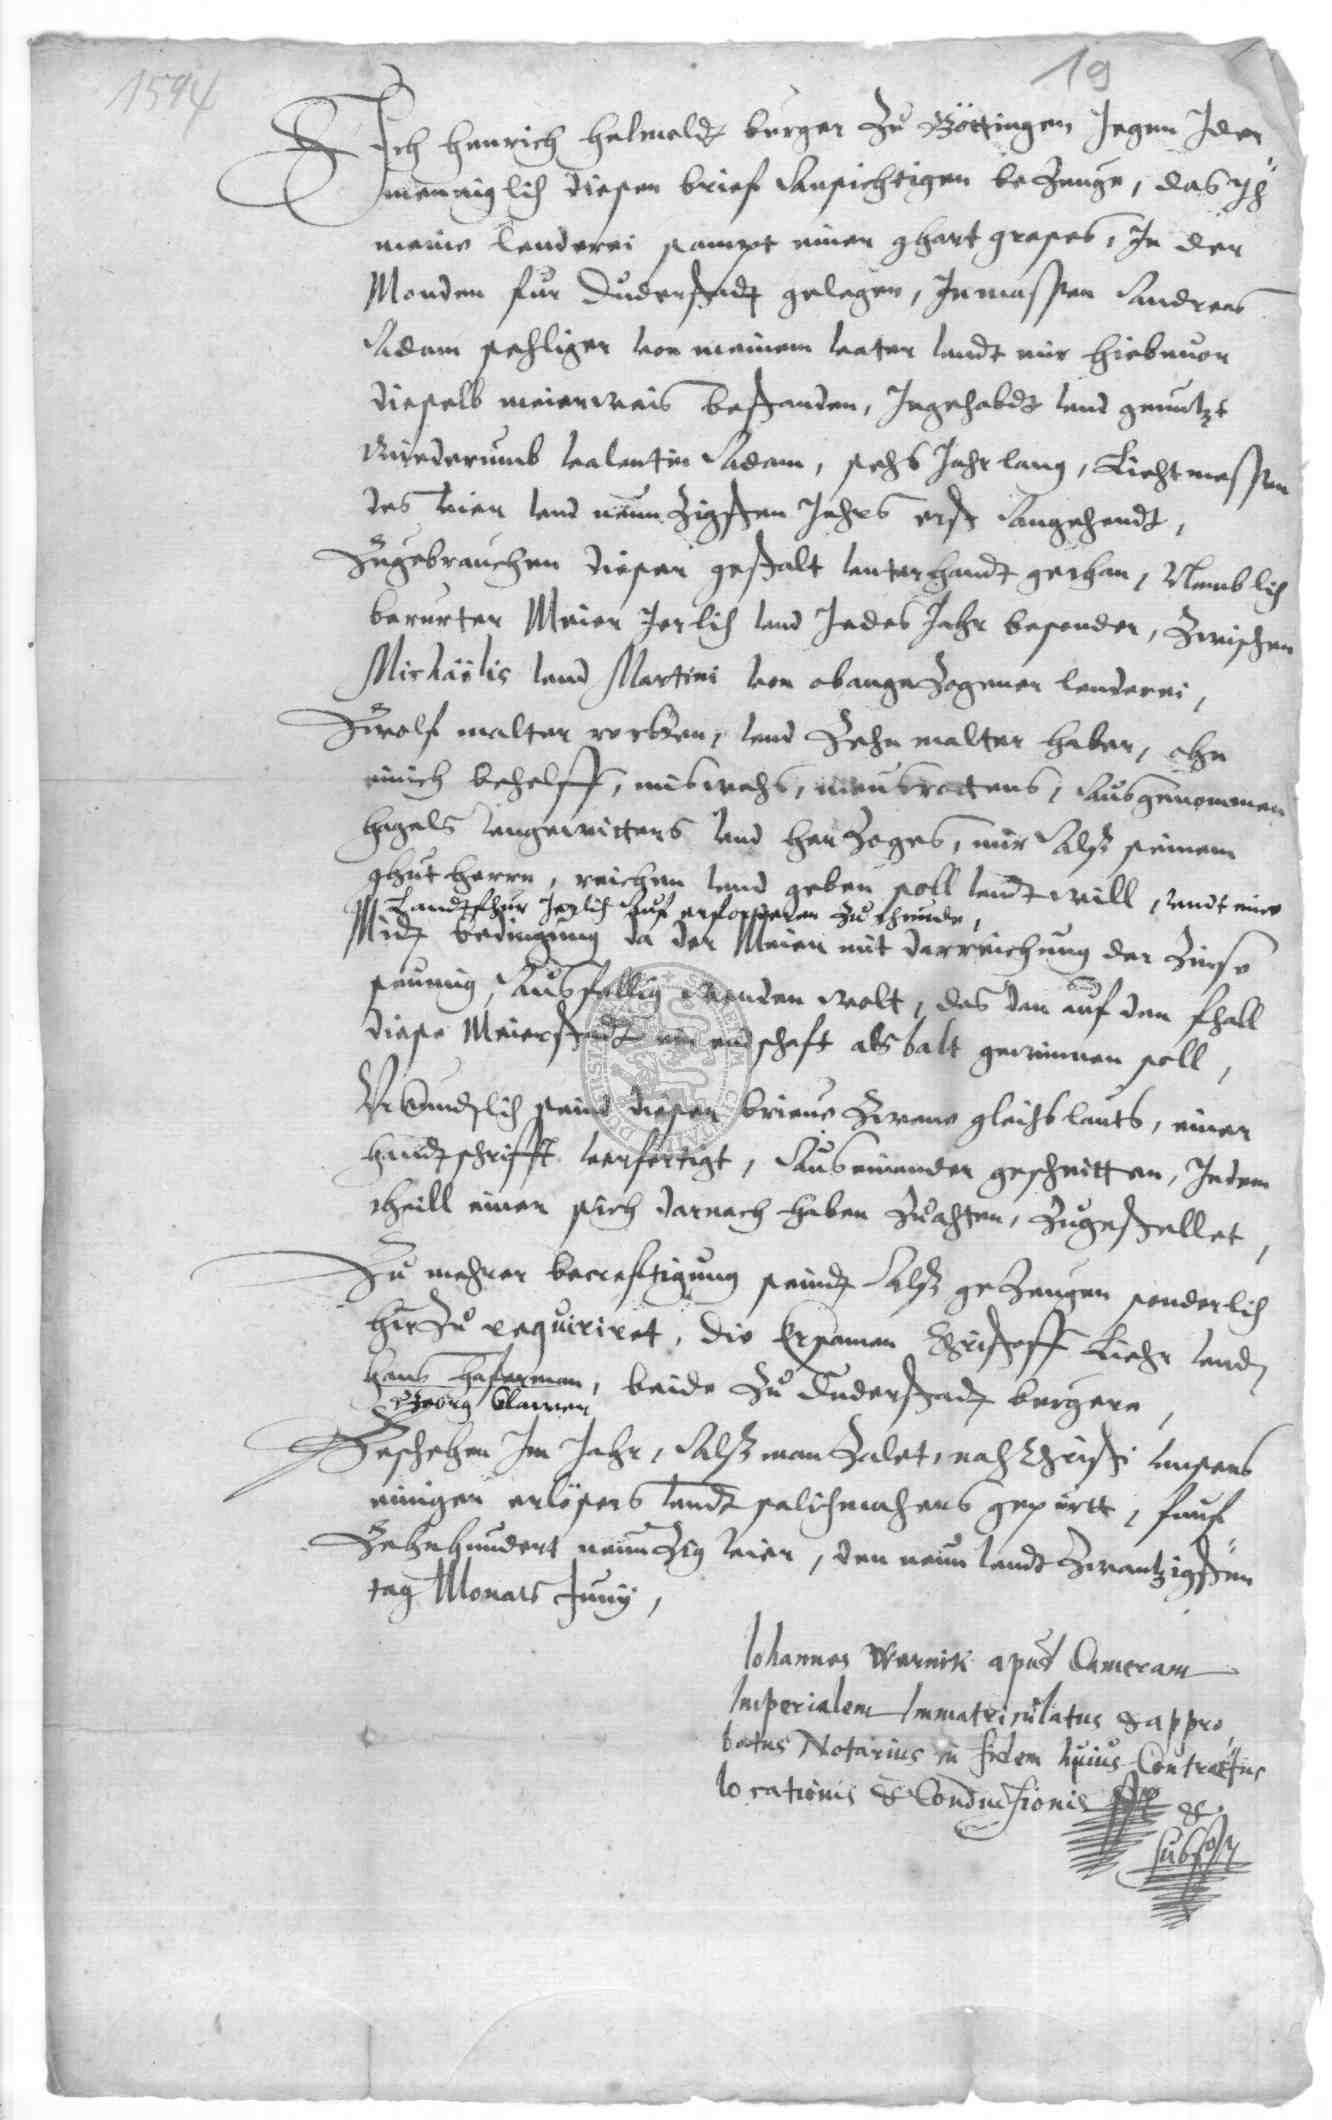 1594
19
Ich Henrich Helmoldt burger zu Göttingen Jegen Jder
menniglich diesen brief Ansichtigen bezeuge, das Ich
meine lenderei sampt einen ghart grases, In der
Monden fur Duderstadt gelegen, Inmassen Andreas
Adam sehliger von meinem vater undt mir hiebeuor
dieselb meierweis bestanden, Ingehabdt und genutzt
Wiederumb Valentin Adam, sechs Jahr lang, Lichtmessen
des vier und neunzigsten Jahrs erst Angehendt,
Zugebrauchen dieser gestalt unterhandt gethan, Nemblich
berurter Meier Jerlich und Jedes Jahr besonder, Zwischen
Michaëlis und Martini von obangezogener lenderei,
Zwolf malter rocken, und Zehn malter haber, ohn
einich behelff, miswachs, meusvrattens, Ausgenommen
hagels ungewitters und herzoges, mir Alß seinem
ghutherrn, reichen und geben soll undt will, undt eine
Landtfhur Jerlich Auf erfordern zu thunde,
Midt bedingung da der Meier mit darreichung der Zinse
seumig, Ausfellig werden wolt, das dan auf den fhall
diese Meierstadt ein endschaft alsbalt gewinnen soll,
Urkundtlich seind dieser brieue zwene gleichs lauts, einer
handtschrifft verfertigt, Auseinander geschnitten, Jedem
theill einen sich darnach haben zuachten, zugestellet,
Zu mehrer becreftigung seindt Alß gezeugen sonderlich
hirzu requiriret, die Ersamen Christoff Liehr undt
hans haferman, beide zu Duderstadt burgere,
Georg Clawen
Geschehen Im Jahr, Alß man zalet, nach Christi unsers
einigen erlösers undt salichmachers gepurtt, funf
Zehnhundert neunzig vier, den neun undt zwantzigsten
tag Monats Junij,
Iohannes Wernik apud Cameram
Imperialem Immatriculatus & appro
batus Notarius in fidem huius Contractus
locationis & Conductionis sst &
subsst